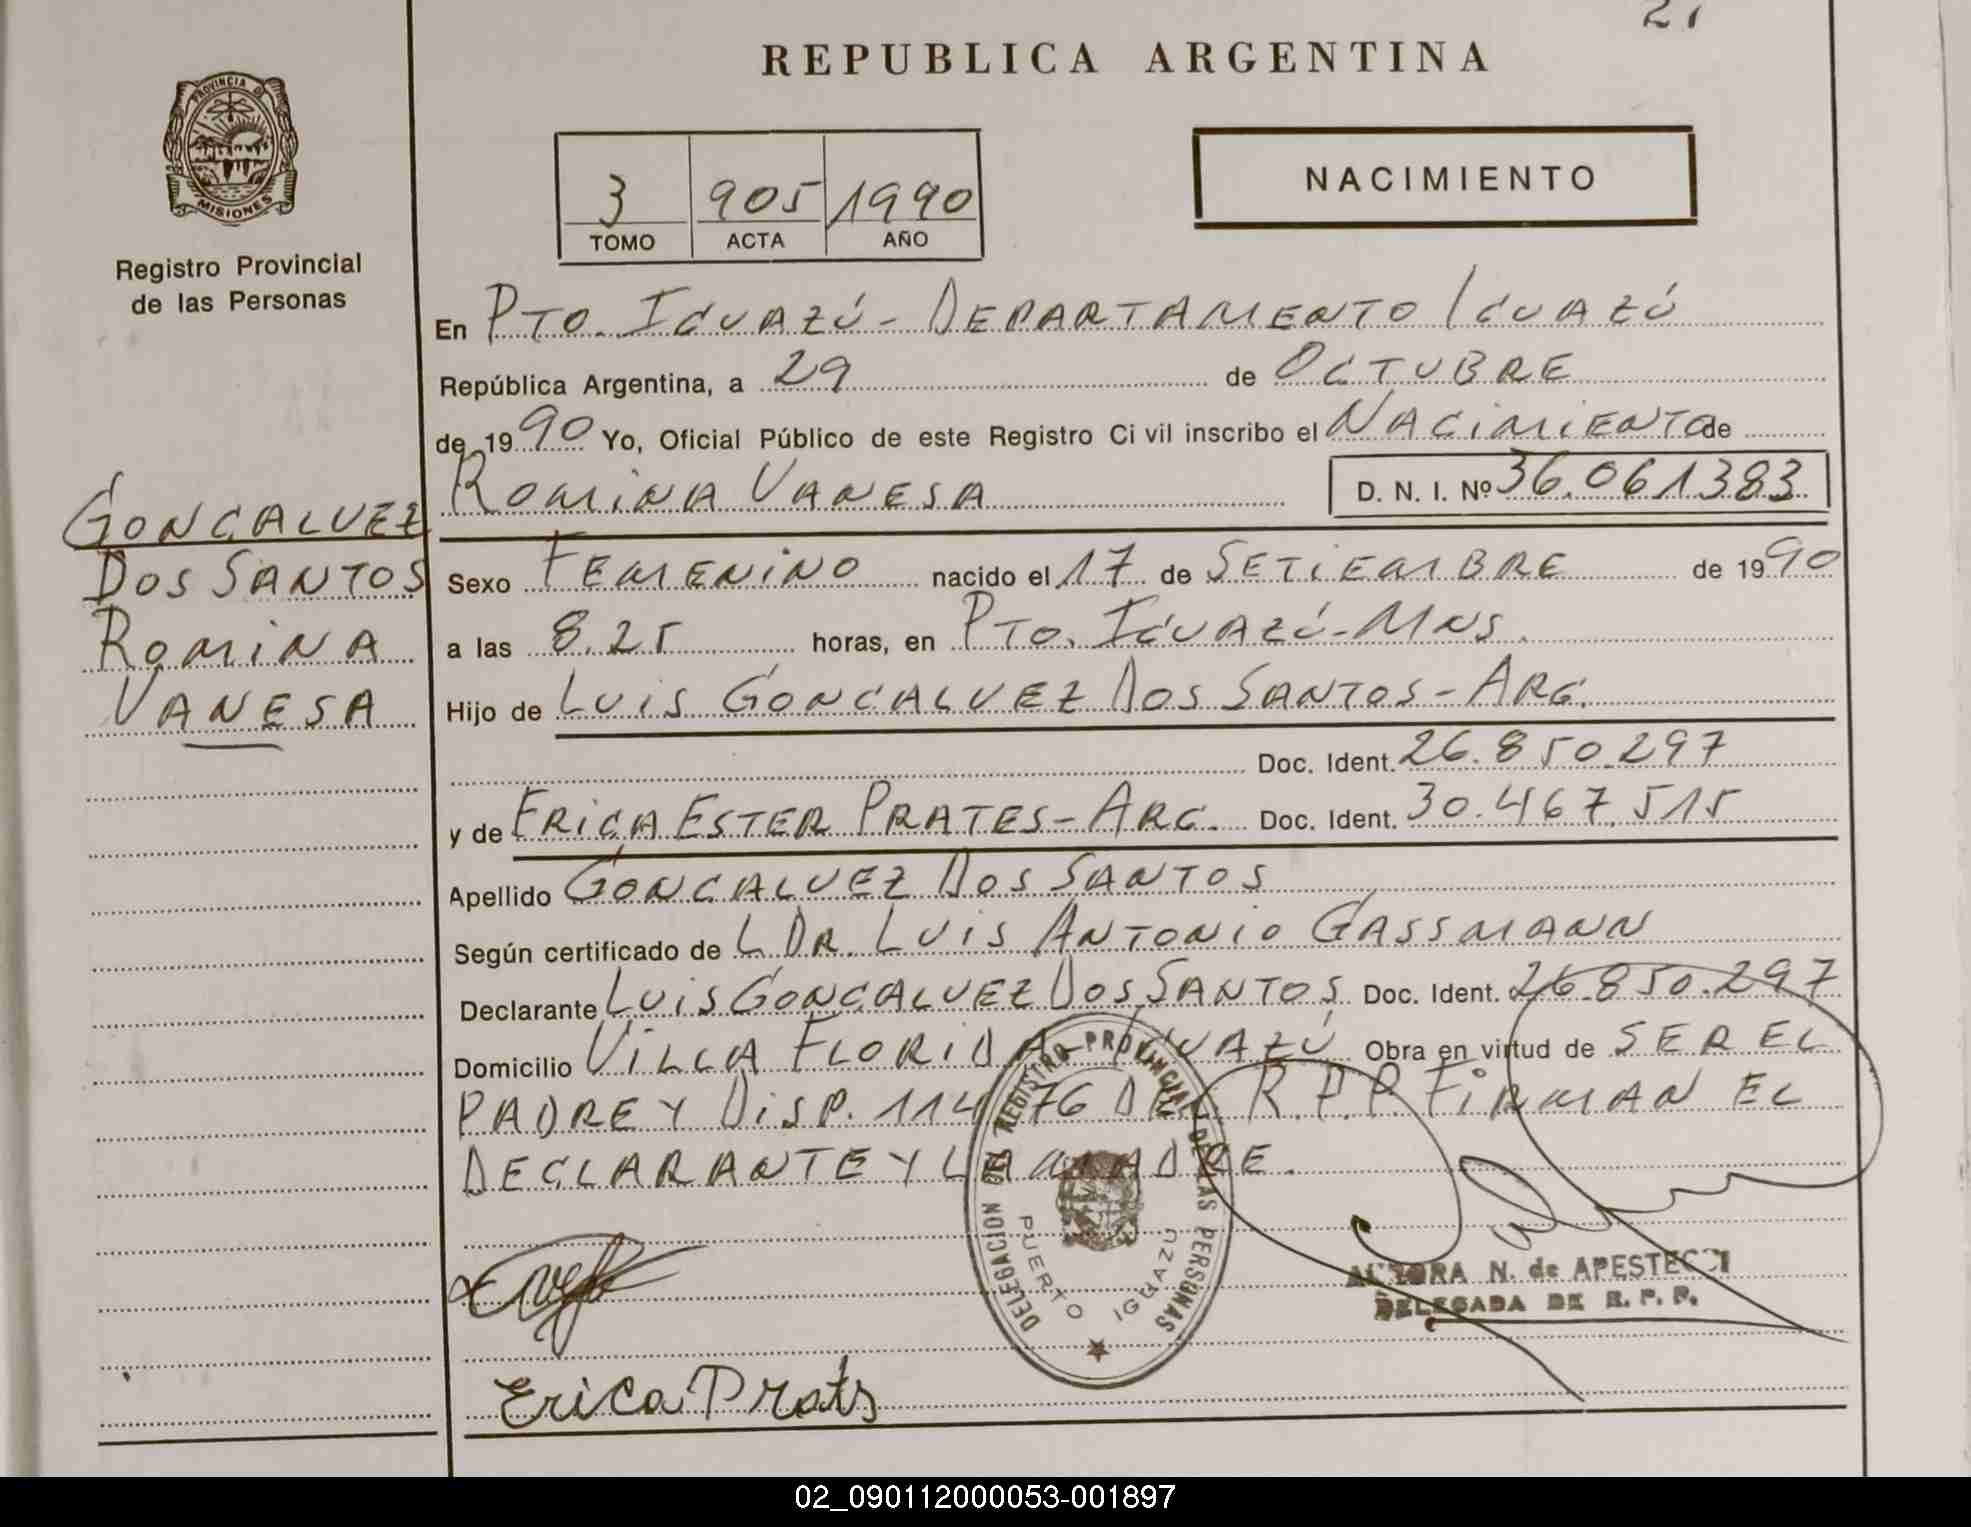 21
REPUBLICA ARGENTINA
PROVINCIA DE
MISIONES
Registro Provincial
de las Personas
3 905 1990
TOMO ACTA AÑO
NACIMIENTO
En PTO. IGUAZÚ - DEPARTAMENTO IGUAZÚ
República Argentina, a 29 de OCTUBRE
de 1990 Yo, Oficial Público de este Registro Civil inscribo el NACIMIENTO de
ROMINA VANESA D. N. I. Nº 36.061383
GONCALVEZ
DOS SANTOS
ROMINA
VANESA
Sexo FEMENINO nacido el 17 de SETIEMBRE de 1990
a las 8.25 horas, en PTO. IGUAZÚ-MNS.
Hijo de LUIS GONCALVEZ DOS SANTOS - ARG.
Doc. Ident. 26.850.297
y de ERICA ESTER PRATES - ARG. Doc. Ident. 30.467.515
Apellido GONCALVEZ DOS SANTOS
Según certificado de L DR. LUIS ANTONIO GASSMANN
Declarante LUIS GONCALVEZ DOS SANTOS Doc. Ident. 26.850.297
Domicilio VILLA FLORIDA - IGUAZÚ Obra en virtud de SER EL
PADRE Y DISP. 114/76 DEL R.P.P. FIRMAN EL
DECLARANTE Y LA MADRE.
DELEGACION DEL REGISTRO PROVINCIAL DE LAS PERSONAS
PUERTO IGUAZU
AURORA N. de APESTEGUI
DELEGADA DE R. P. P.
Erica Prats
02_090112000053-001897